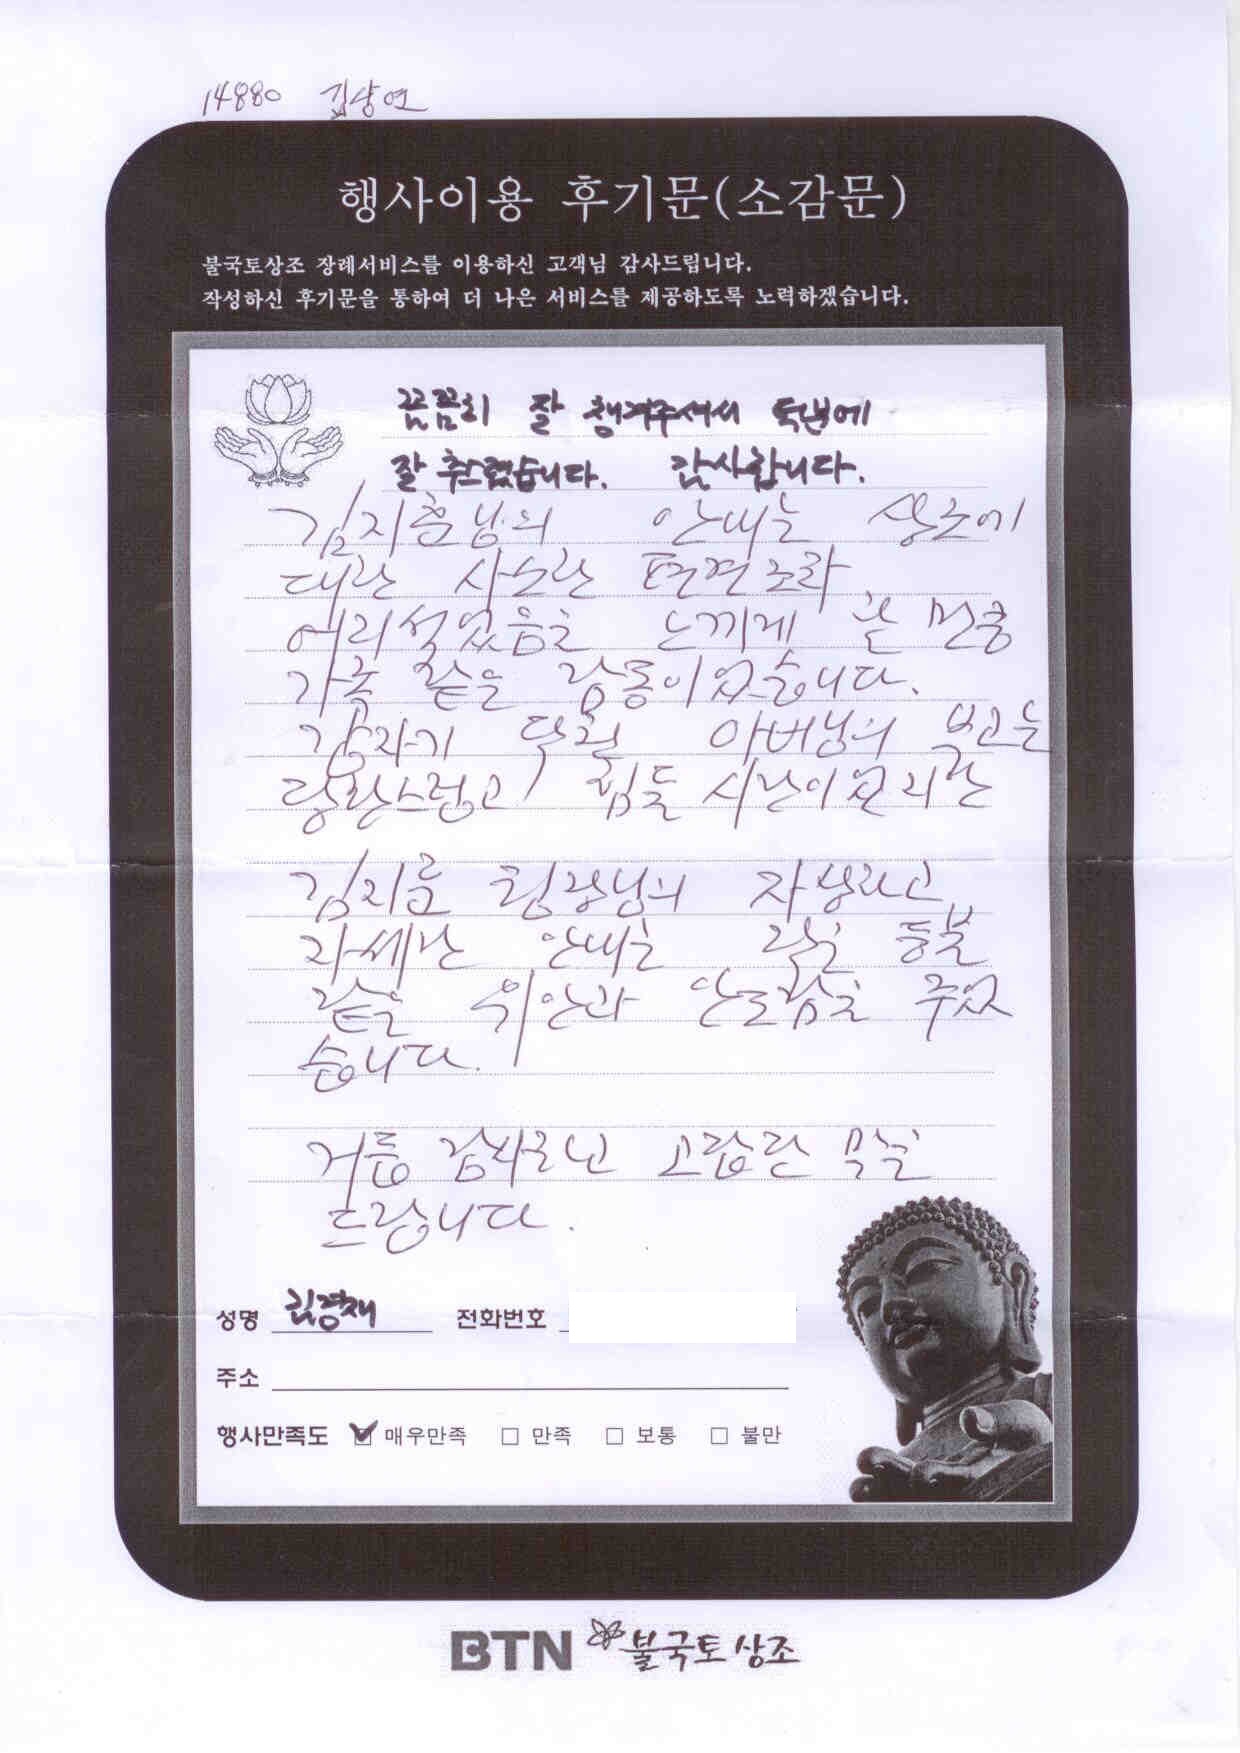 14880 김상연
행사이용 후기문(소감문)
불국토상조 장례서비스를 이용하신 고객님 감사드립니다.
작성하신 후기문을 통하여 더 나은 서비스를 제공하도록 노력하겠습니다.
꼼꼼히 잘 챙겨주셔서 덕분에
잘 추스렸습니다. 감사합니다.
김지훈님의 안내는 상조에
대한 사소한 편견조차
어리석었음을 느끼게 한 만큼
가족 같은 감동이었습니다.
갑자기 닥친 아버님의 부고는
당황스럽고 힘들 시간이었지만
김지훈 팀장님의 자상하고
자세한 안내는 작은 등불
같은 위안과 안도감을 주었
습니다.
거듭 감사로난 고맙단 말을
드립니다.
성명 김경재 전화번호
주소
행사만족도 매우만족 만족 보통 불만
BTN 불국토상조